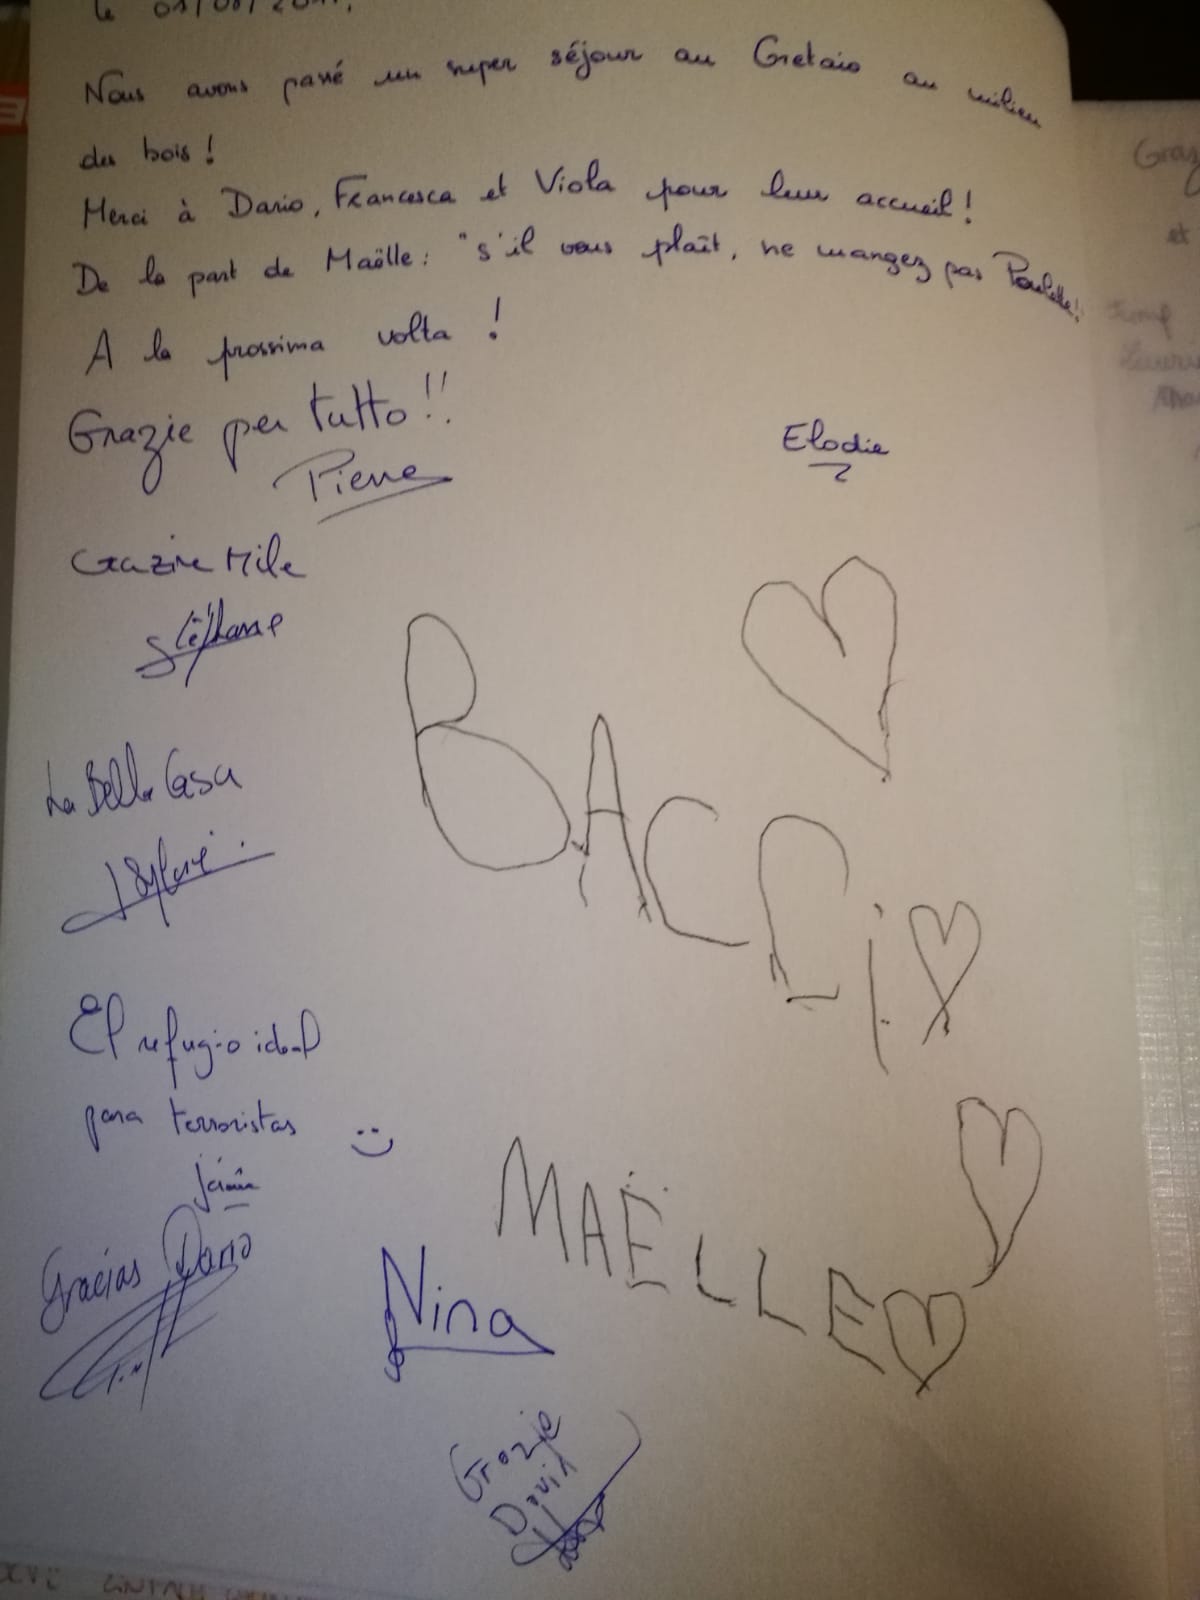 Nous avons passé un super séjour au Gretaio au milieu
des bois !
Merci à Dario, Francesca et Viola pour leur accueil !
De la part de Maëlle : "s'il vous plaît, ne mangez pas Poulette !
A la prossima volta !
Grazie per tutto !!
Pierre
Elodie
Grazie Mile
Stéphane
BACCi
La Bella Casa
Sylvie
El refugio ideal
para terroristas :)
Gracias Dario
MAËLLE
Nina
Grazie
David